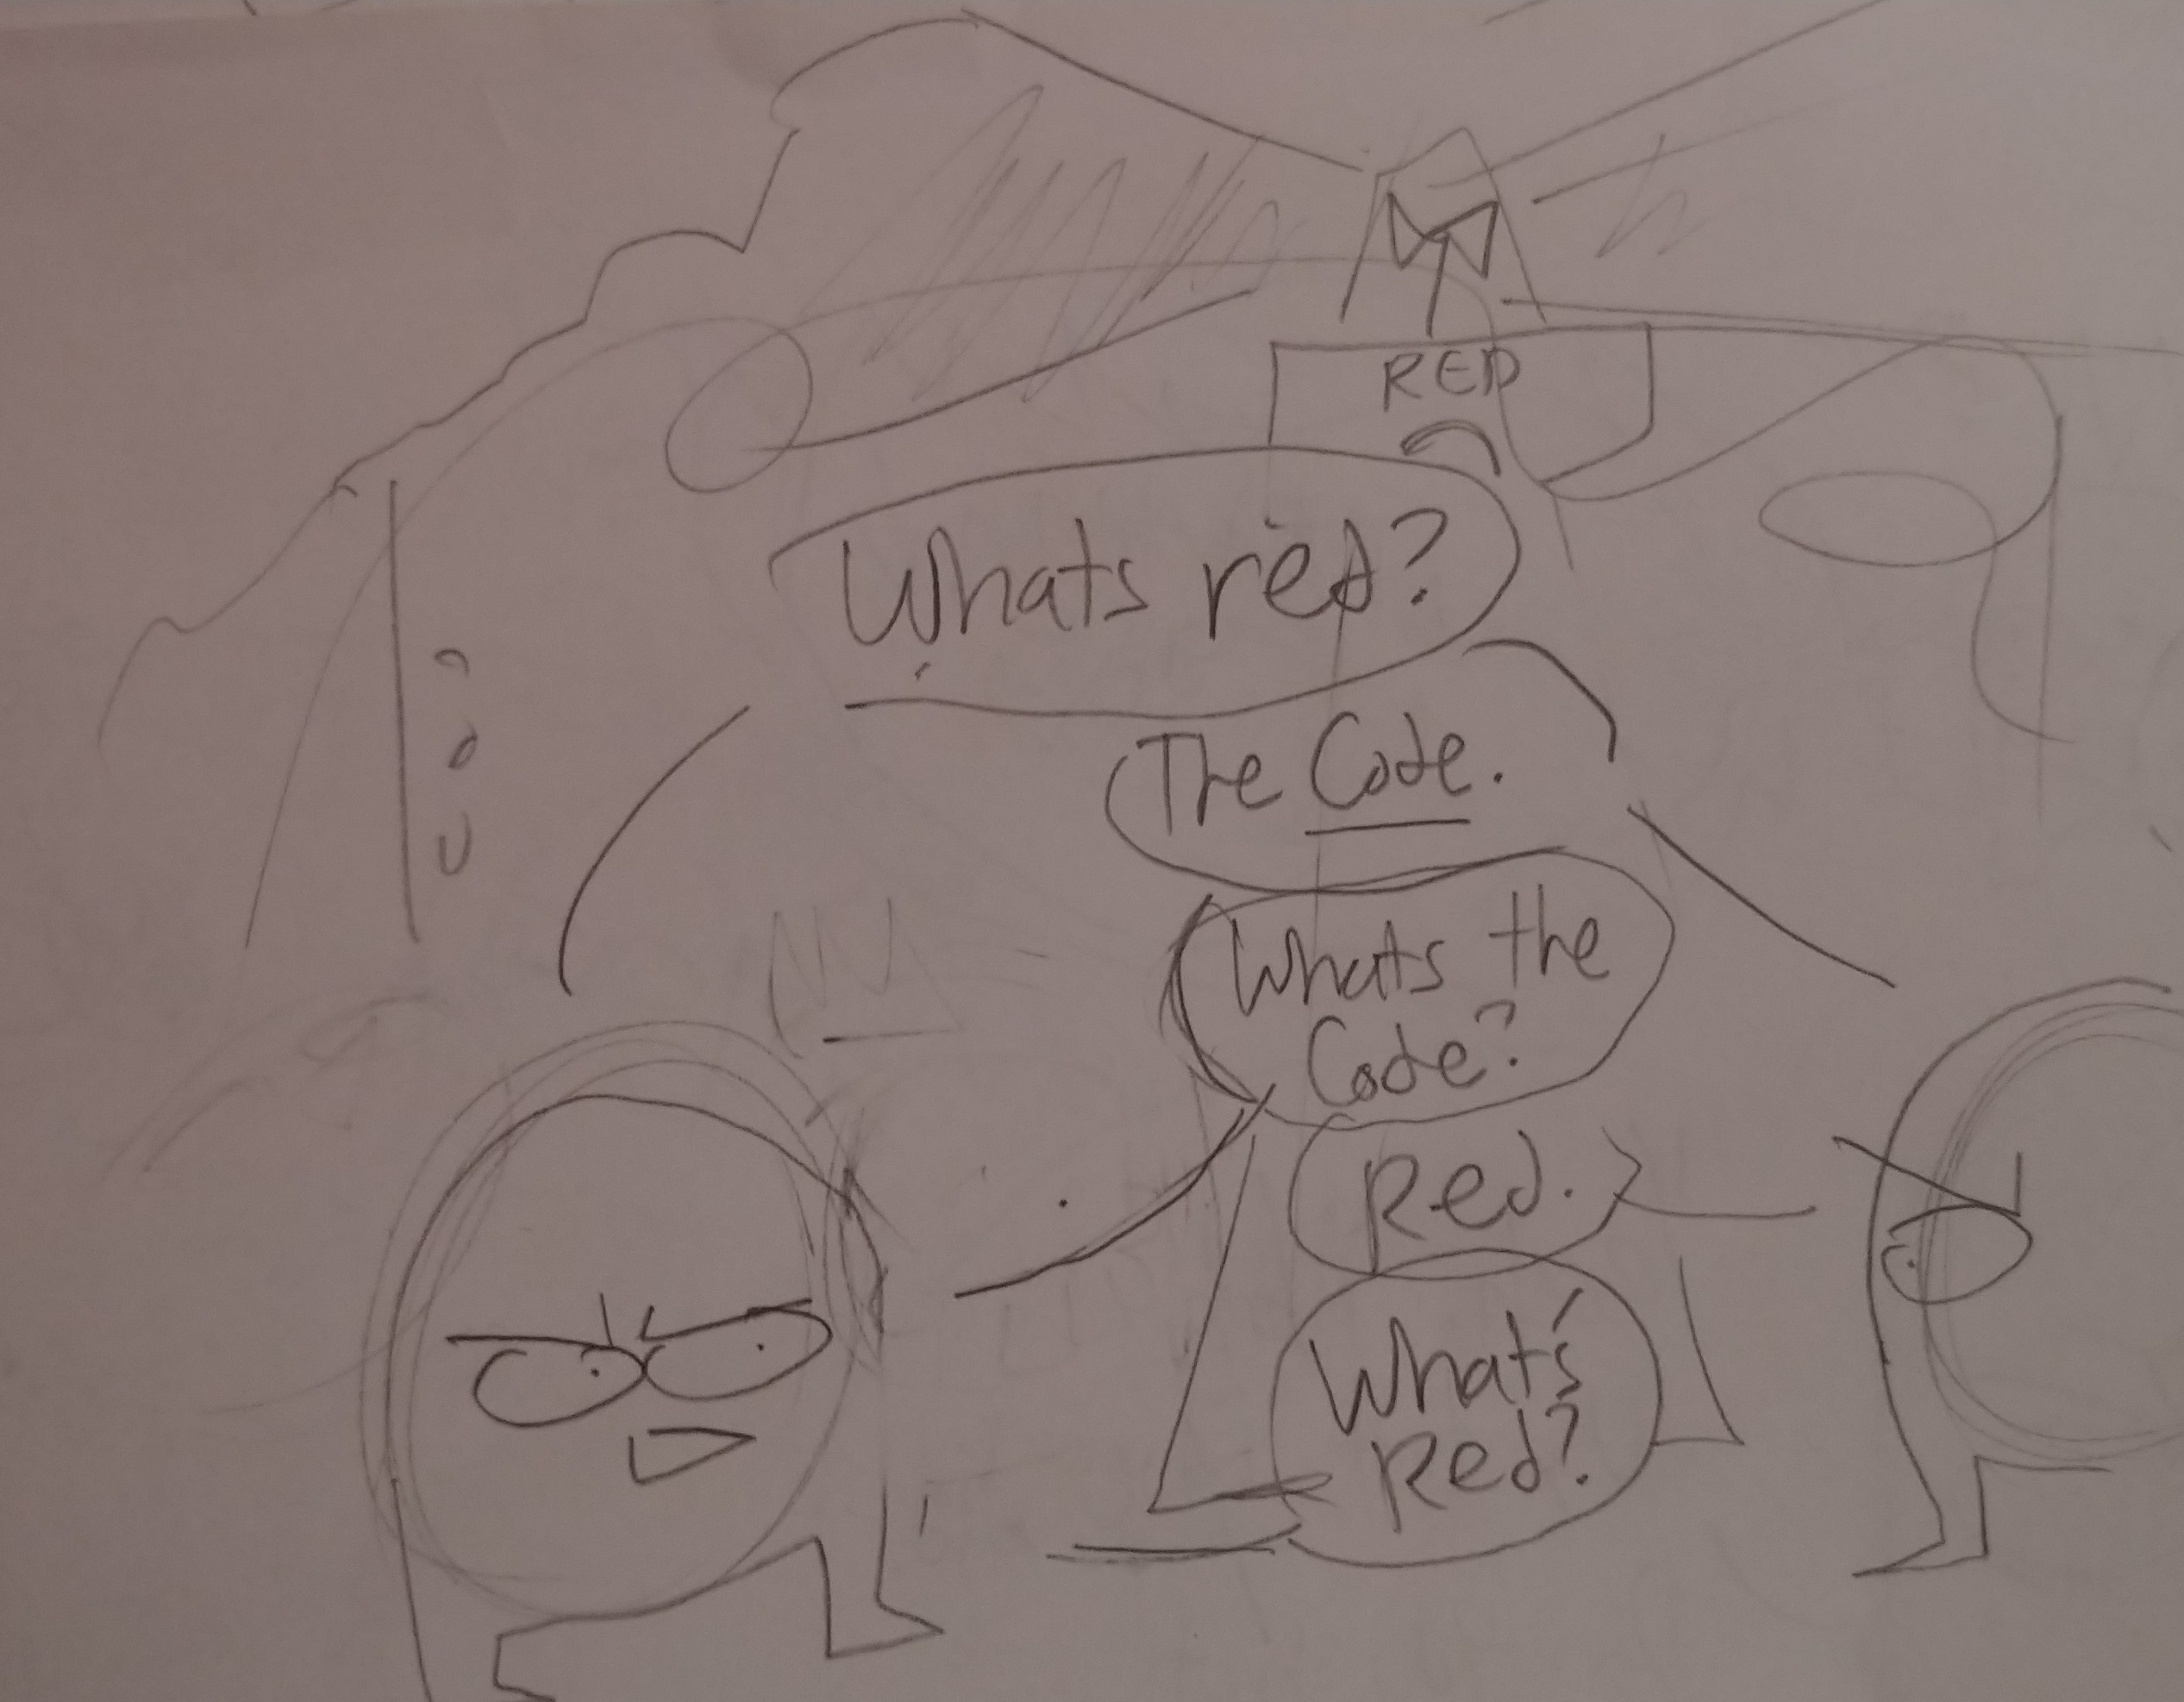 RED
Whats red?
The Code.
Whats the
Code?
Red.
What's
Red?